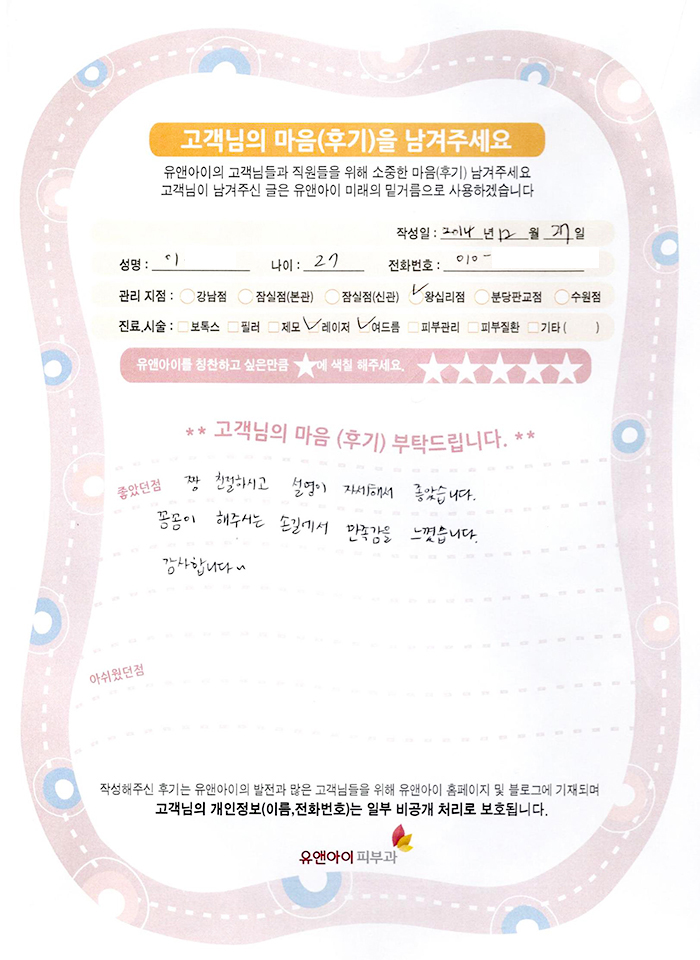 고객님의 마음(후기)을 남겨주세요
유앤아이의 고객님들과 직원들을 위해 소중한 마음(후기) 남겨주세요
고객님이 남겨주신 글은 유앤아이 미래의 밑거름으로 사용하겠습니다
작성일 : 2014 년 12 월 27 일
성명 : 이 나이 : 27 전화번호 : 010-
관리 지점 : 강남점 잠실점(본관) 잠실점(신관) 왕십리점 분당판교점 수원점
진료.시술 : 보톡스 필러 제모 레이저 여드름 피부관리 피부질환 기타 ( )
유앤아이를 칭찬하고 싶은만큼 ★에 색칠 해주세요. ★★★★★
** 고객님의 마음 (후기) 부탁드립니다. **
좋았던점 짱 친절하시고 설명이 자세해서 좋았습니다.
꼼꼼이 해주시는 손길에서 만족감을 느꼈습니다.
감사합니다~
아쉬웠던점
작성해주신 후기는 유앤아이의 발전과 많은 고객님들을 위해 유앤아이 홈페이지 및 블로그에 기재되며
고객님의 개인정보(이름,전화번호)는 일부 비공개 처리로 보호됩니다.
유앤아이 피부과